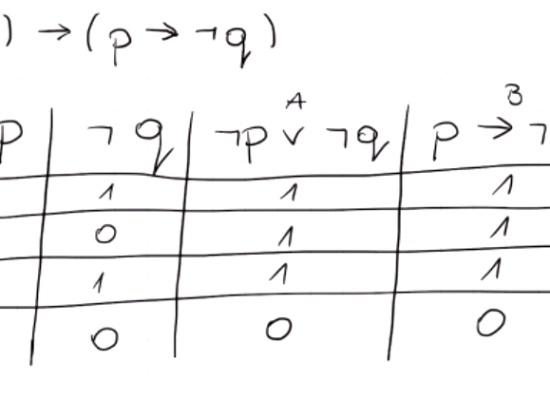 ) → (p → ¬q)
A B
p ¬q ¬p ∨ ¬q p → ¬
1 1 1
0 1 1
1 1 1
0 0 0